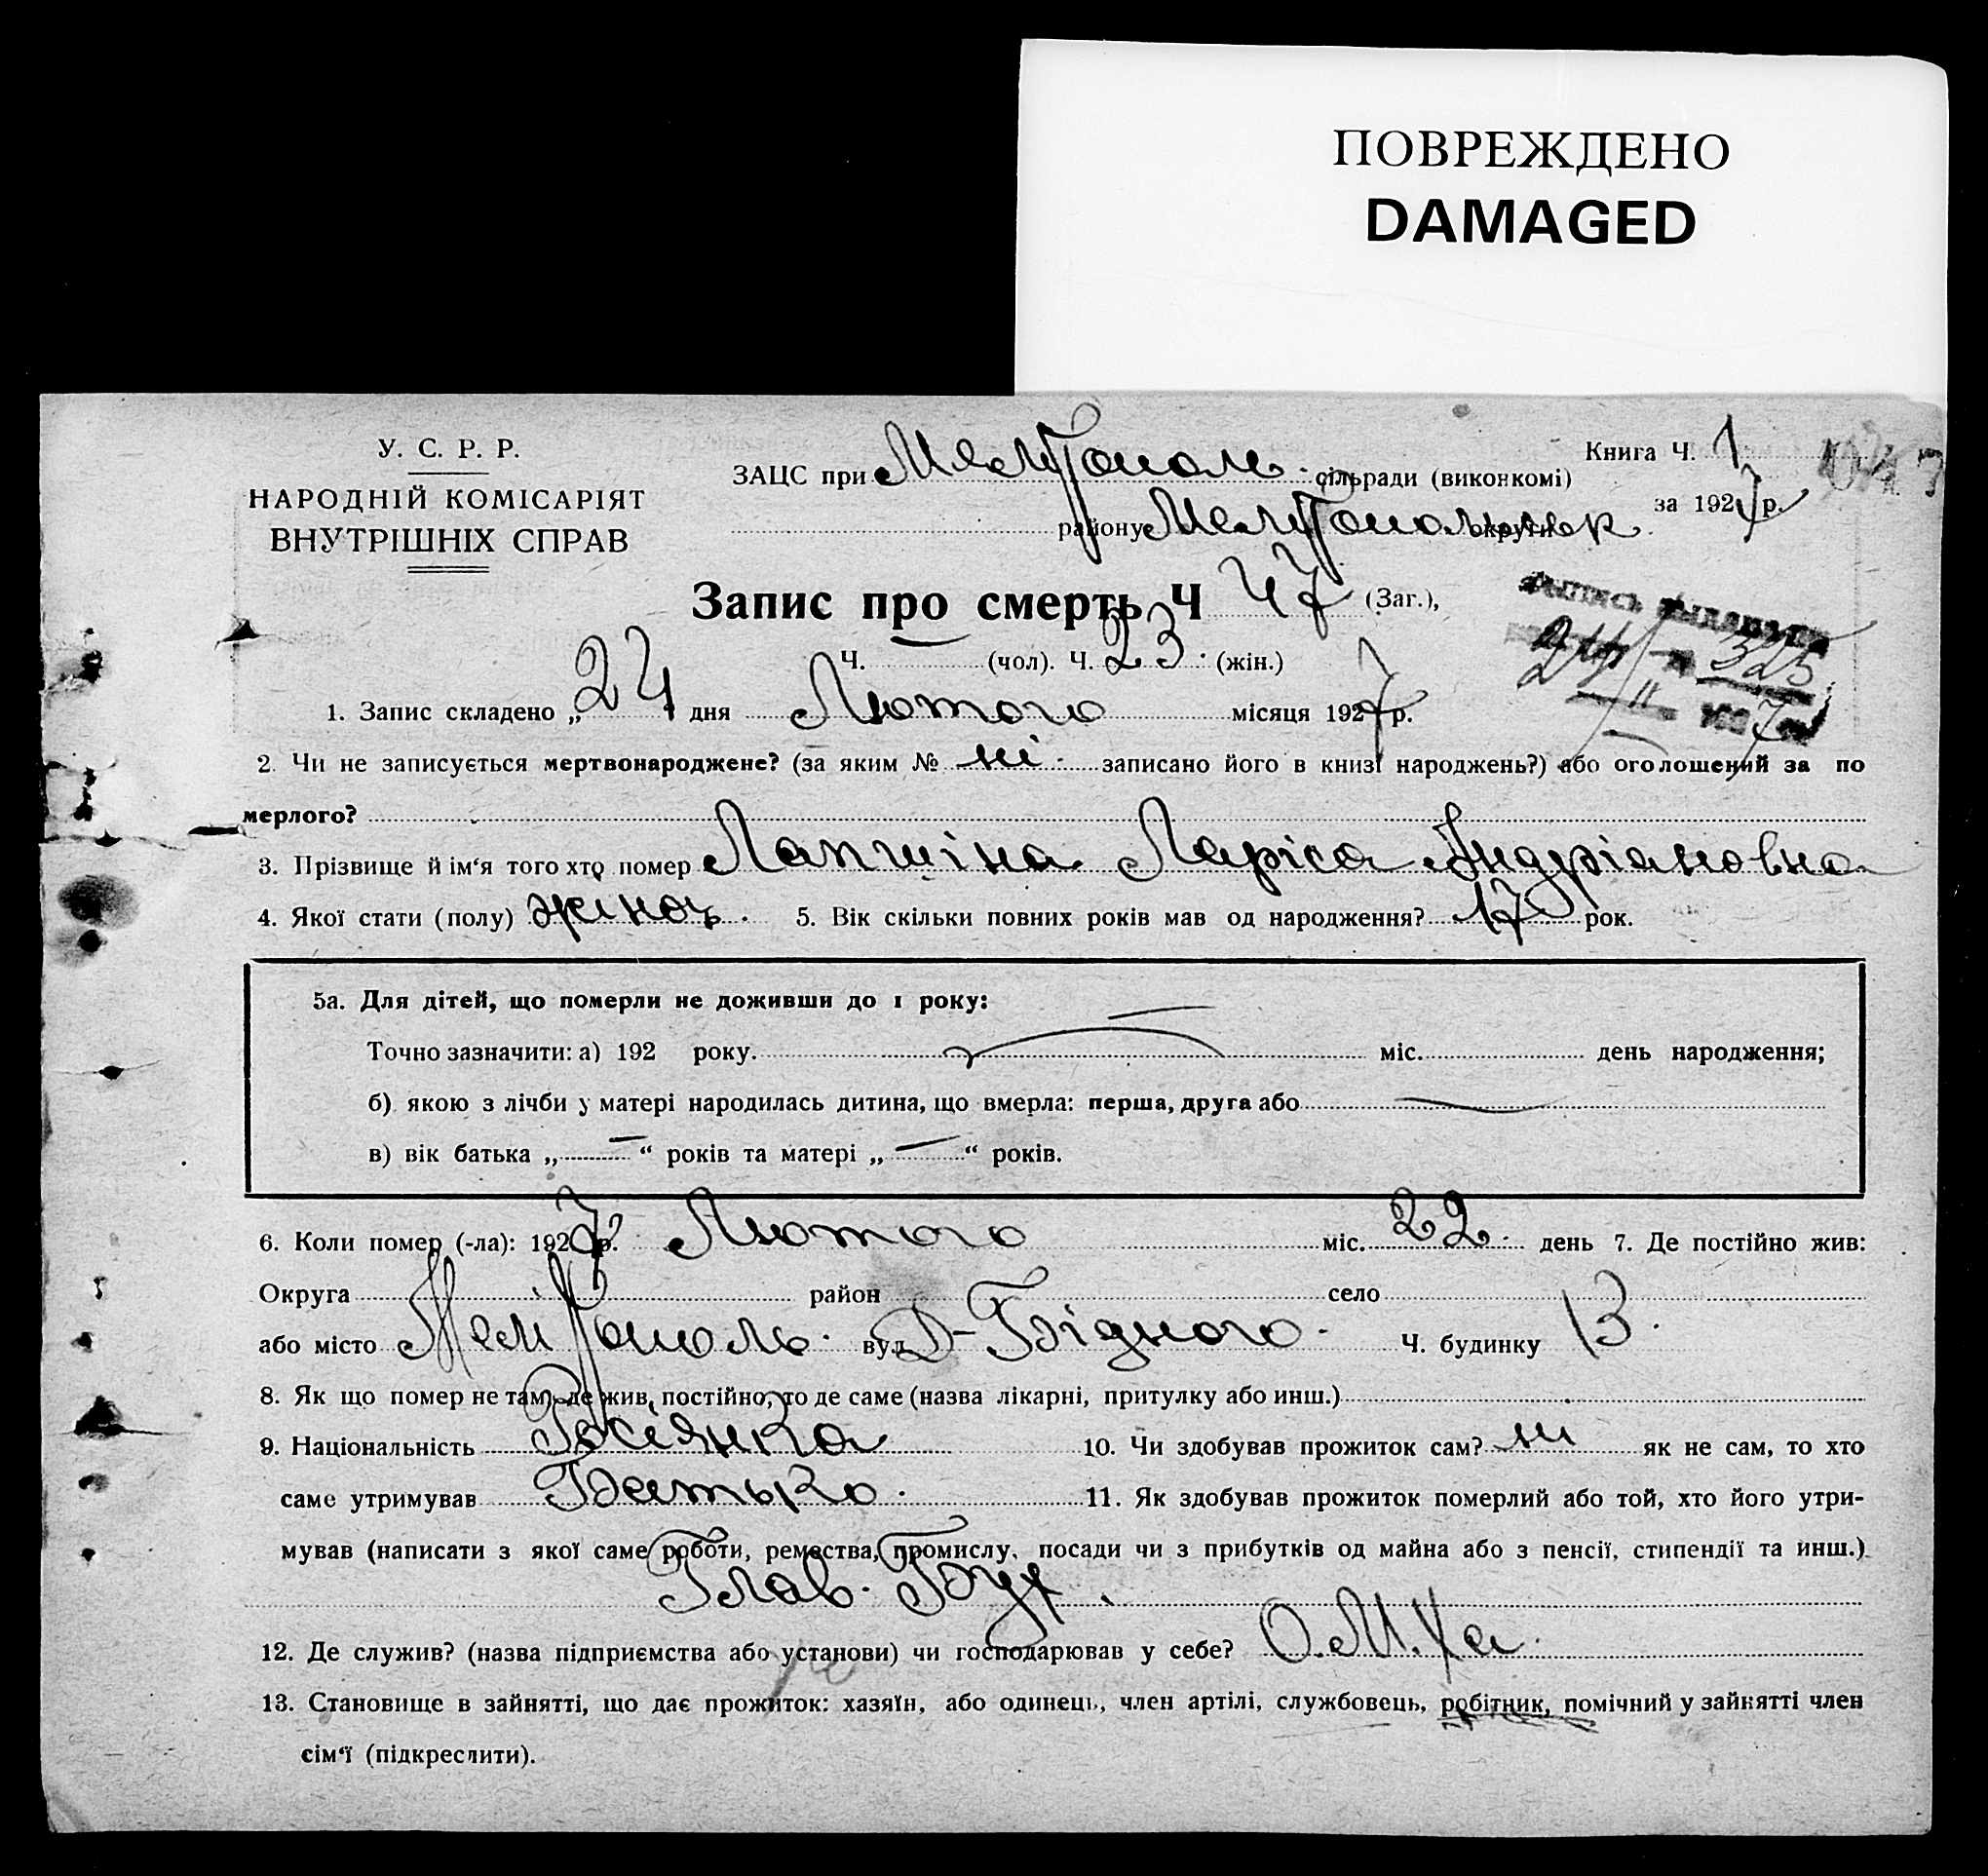 ПОВРЕЖДЕНО
DAMAGED
У. С. Р. Р.
НАРОДНІЙ КОМІСАРІЯТ
ВНУТРІШНІХ СПРАВ
ЗАЦС при Мелітополь сільради (виконкомі)
району округи
Книга Ч. 1
за 1927 р.
Запис про смерть Ч 47 (Заг.),
Ч. (чол). Ч. 23. (жін.)
325
1. Запис складено „ 24 дня Лютого місяця 1927 р.
2. Чи не записується мертвонароджене? (за яким № ні. записано його в книзі народжень?) або оголошений за по
мерлого?
3. Прізвище й ім'я того хто помер Лапшіна Ларіса Андріановна
4. Якої стати (полу) жіноч. 5. Вік скільки повних років мав од народження? 17 рок.
5а. Для дітей, що померли не доживши до 1 року:
Точно зазначити: а) 192 року. міс. день народження;
б) якою з лічби у матері народилась дитина, що вмерла: перша, друга або
в) вік батька „ — “ років та матері „ — “ років.
6. Коли помер (-ла): 1927 р. Лютого міс. 22. день 7. Де постійно жив:
Округа район село
або місто Мелітополь. вул. Д-Бідного. Ч. будинку 13.
8. Як що помер не там, де жив, постійно, то де саме (назва лікарні, притулку або инш.)
9. Національність Росіянка 10. Чи здобував прожиток сам? ні як не сам, то хто
саме утримував Батько. 11. Як здобував прожиток померлий або той, хто його утри-
мував (написати з якої саме роботи, ремества, промислу, посади чи з прибутків од майна або з пенсії, стипендії та инш.)
Глав. Бух.
12. Де служив? (назва підприємства або установи) чи господарював у себе?
13. Становище в зайнятті, що дає прожиток: хазяїн, або одинець, член артілі, службовець, робітник, помічний у зайнятті член
сім'ї (підкреслити).